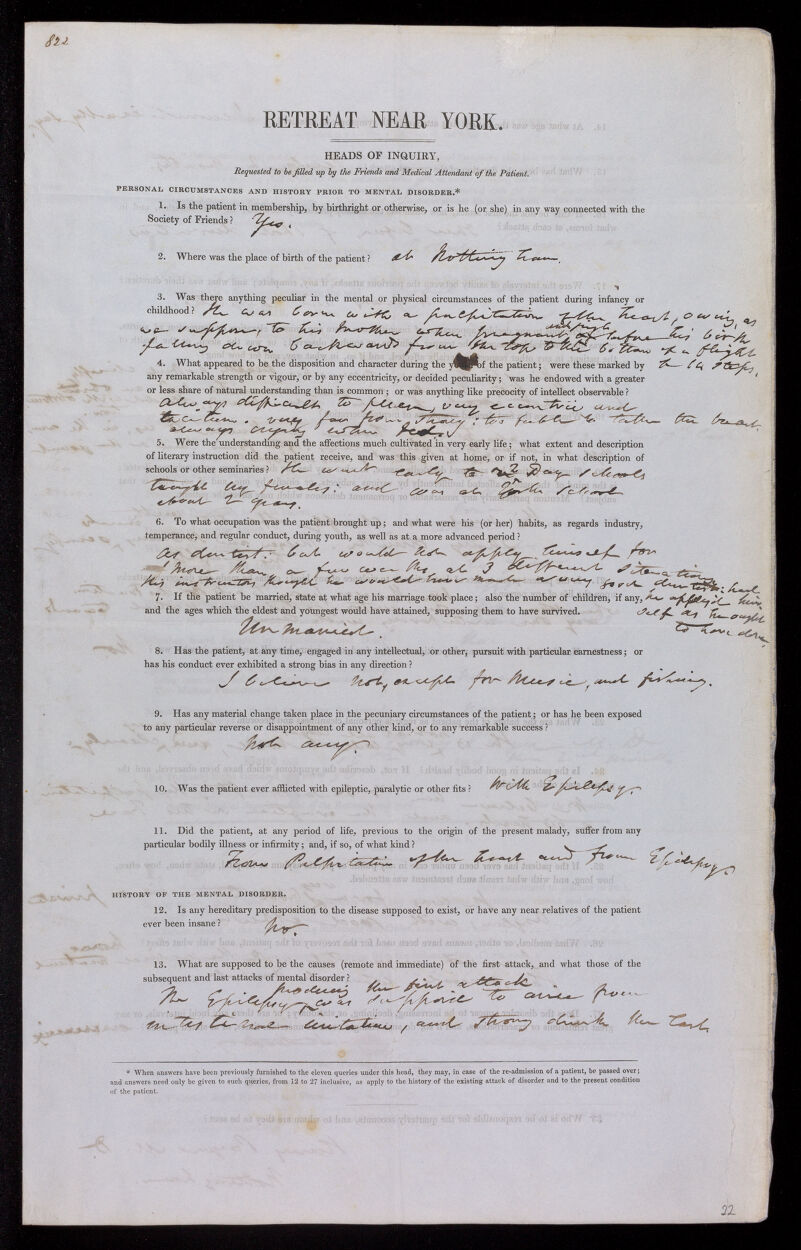 822
RETREAT NEAR YORK.
HEADS OF INQUIRY,
Requested to be filled up by the Friends and Medical Attendant of the Patient.
PERSONAL CIRCUMSTANCES AND HISTORY PRIOR TO MENTAL DISORDER.*
1. Is the patient in membership, by birthright or otherwise, or is he (or she) in any way connected with the
Society of Friends? Yes.
2. Where was the place of birth of the patient? at Nottingham.
3. Was there anything peculiar in the mental or physical circumstances of the patient during infancy or
childhood? He was born with a palpitation of the heart, owing, as
we suppose, to his Mother when pregnant before his birth
falling down backwards from the top to the bottom of a flight
of steps.
4. What appeared to be the disposition and character during the of the patient; were these marked by
any remarkable strength or vigour, or by any eccentricity, or decided peculiarity; was he endowed with a greater
or less share of natural understanding than is common; or was anything like precocity of intellect observable?
always difficult to please, very eccentric and
taciturn. very far from strong: too feeble to take the breast.
always crying when fed.
5. Were the understanding and the affections much cultivated in very early life; what extent and description
of literary instruction did the patient receive, and was this given at home, or if not, in what description of
schools or other seminaries? He went early to Day schools
taught by females: and was at School
about 2 years.
6. To what occupation was the patient brought up; and what were his (or her) habits, as regards industry,
temperance, and regular conduct, during youth, as well as at a more advanced period?
As dentist: but would not apply himself for
more than a few weeks, at 3 different situations
his instructors thought he would have made a very good dentist: had
he applied him-
self as he ought
to have done.
7. If the patient be married, state at what age his marriage took place; also the number of children, if any,
and the ages which the eldest and youngest would have attained, supposing them to have survived.
Unmarried.
8. Has the patient, at any time, engaged in any intellectual, or other, pursuit with particular earnestness; or
has his conduct ever exhibited a strong bias in any direction?
I believe not, except for Music, and fishing.
9. Has any material change taken place in the pecuniary circumstances of the patient; or has he been exposed
to any particular reverse or disappointment of any other kind, or to any remarkable success?
Not any.
10. Was the patient ever afflicted with epileptic, paralytic or other fits? With Epilepsy.
11. Did the patient, at any period of life, previous to the origin of the present malady, suffer from any
particular bodily illness or infirmity; and, if so, of what kind?
From Palpitation of the heart and from Epilepsy.
HISTORY OF THE MENTAL DISORDER.
12. Is any hereditary predisposition to the disease supposed to exist, or have any near relatives of the patient
ever been insane? No.
13. What are supposed to be the causes (remote and immediate) of the first attack, and what those of the
subsequent and last attacks of mental disorder?
producing the first attack
The Epilepsy was supposed to arise from
intestinal irritation, and strong drink the last.
* When answers have been previously furnished to the eleven queries under this head, they may, in case of the re-admission of a patient, be passed over;
and answers need only be given to such queries, from 12 to 27 inclusive, as apply to the history of the existing attack of disorder and to the present condition
of the patient.
22